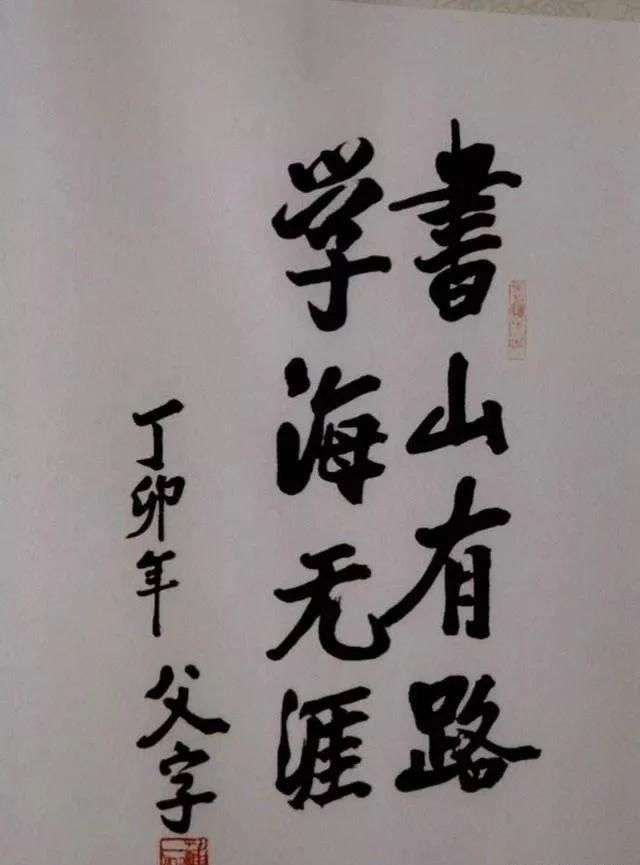 書山有路
学海无涯
丁卯年 父字